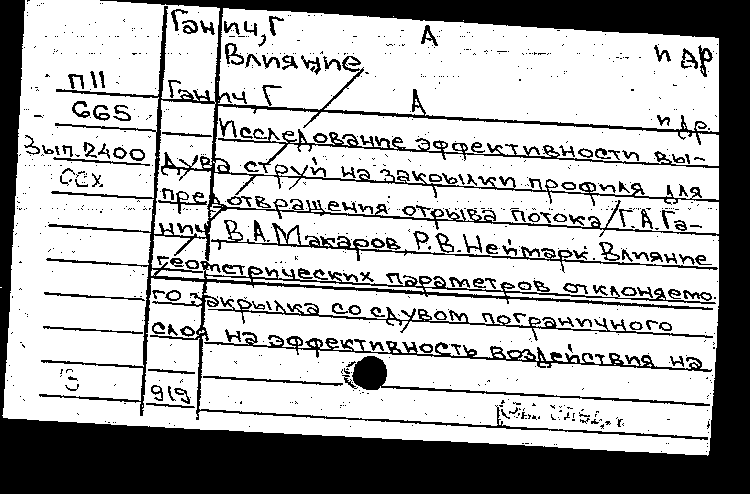 Ганич, Г А и др
Влияние
П11 Ганич, Г А и др.
665 Исследование эффективности вы-
Зып. 2400 дува струй на закрылки профиля для
ССХ предотвращения отрыва потока / Г.А. Га-
нич, В.А. Макаров, Р.В. Неймарк. Влияние
геометрических параметров отклоняемо
го закрылка со сдувом пограничного
слоя на эффективность воздействия на
919